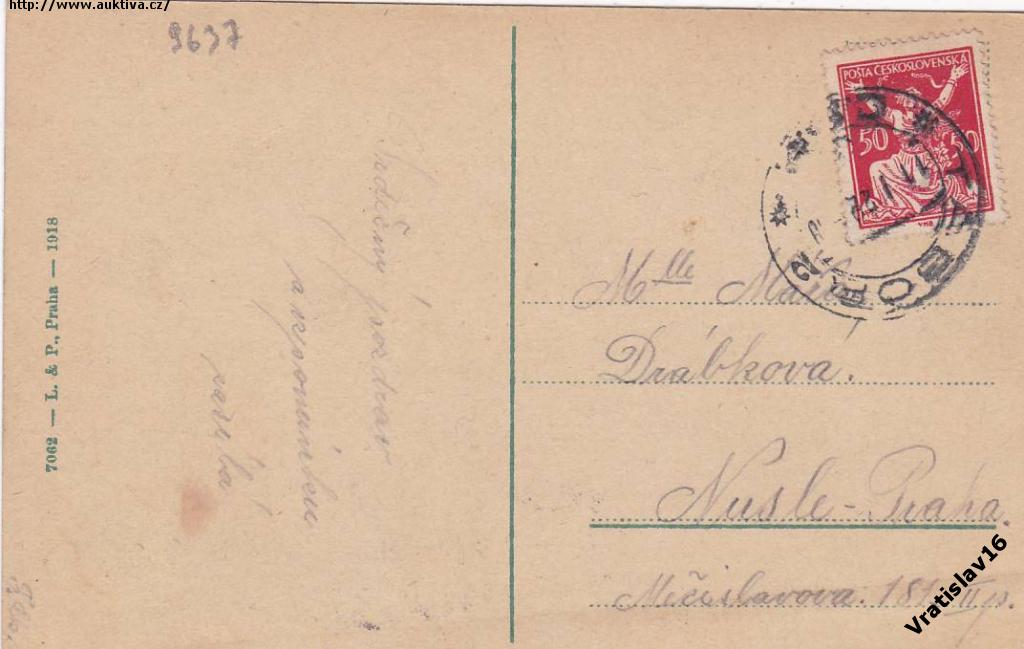 http://www.auktiva.cz/
9637
7062 — L. & P., Praha — 1918
Srdečný pozdrav
a vzpomínkou
POŠTA ČESKOSLOVENSKÁ
50 50
TÁBOR 2
Mlle
Drábkova.
Nusle-Praha.
Mečislavova. 181 II p.
Vratislav16